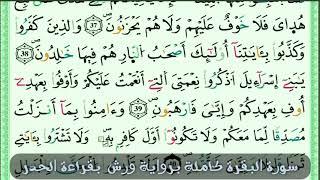 هُدَايَ فَلَا خَوْفٌ عَلَيْهِمْ وَلَا هُمْ يَحْزَنُونَ 37 وَالذِينَ كَفَرُوا
وَكَذَّبُوا بِـَٔايَٰتِنَا أُوْلَٰٓئِكَ أَصْحَٰبُ النّارِ هُمْ فِيهَا خَٰلِدُونَ 38
يَٰبَنِےٓ إِسْرَآءِيلَ اَذْكُرُوا نِعْمَتِيَ اَلتِےٓ أَنْعَمْتُ عَلَيْكُمْ وَأَوْفُوا بِعَهْدِےٓ
أُوفِ بِعَهْدِكُمْ وَإِيَّٰيَ فَارْهَبُونِ 39 وَءَامِنُوا بِمَآ أَنزَلْتُ
مُصَدِّقاً لِّمَا مَعَكُمْ وَلَا تَكُونُوٓا أَوَّلَ كَافِرٍ بِهِۦ وَلَا تَشْتَرُوا بِـَٔايَٰتِے
سورة البقرة كاملة برواية ورش بقراءة الحدر